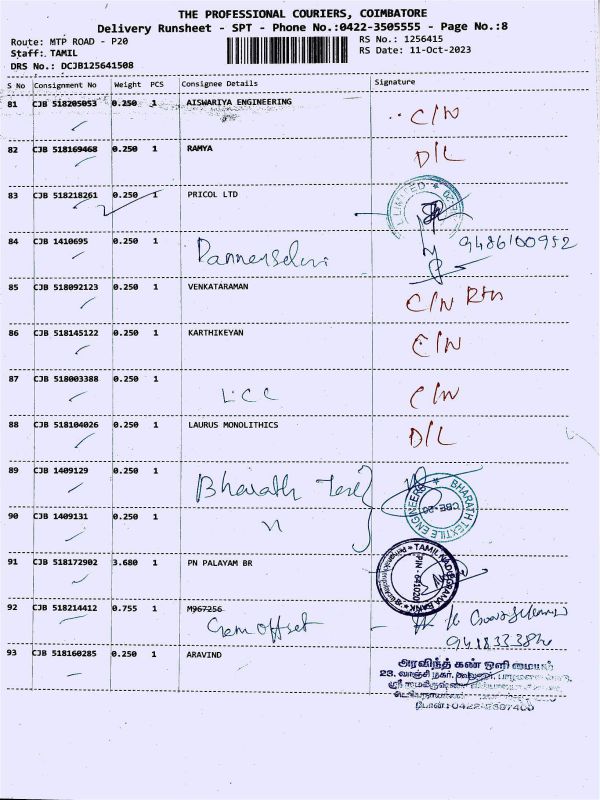 THE PROFESSIONAL COURIERS, COIMBATORE
Delivery Runsheet - SPT - Phone No.:0422-3505555 - Page No.:8
Route: MTP ROAD - P20
RS No.: 1256415
Staff: TAMIL
RS Date: 11-Oct-2023
DRS No.: DCJB125641508
S No Consignment No Weight PCS Consignee Details Signature
81 CJB 518205053 0.250 1 AISWARIYA ENGINEERING C/N
82 CJB 518169468 0.250 1 RAMYA D/L
83 CJB 518218261 0.250 1 PRICOL LTD
LIMITED
84 CJB 1410695 0.250 1 9486100952
85 CJB 518092123 0.250 1 VENKATARAMAN C/N
86 CJB 518145122 0.250 1 KARTHIKEYAN C/N
87 CJB 518003388 0.250 1 LCC C/N
88 CJB 518104026 0.250 1 LAURUS MONOLITHICS D/L
89 CJB 1409129 0.250 1 Bharath
BHARATH TEXTILE ENGINEERS
90 CJB 1409131 0.250 1
91 CJB 518172902 3.680 1 PN PALAYAM BR
TAMIL NADU GRAMA BANK
92 CJB 518214412 0.755 1 M967256
Gem offset
93 CJB 518160285 0.250 1 ARAVIND
அரவிந்த் கண் ஒளி மையம்
23, வாஞ்சி நகர்,